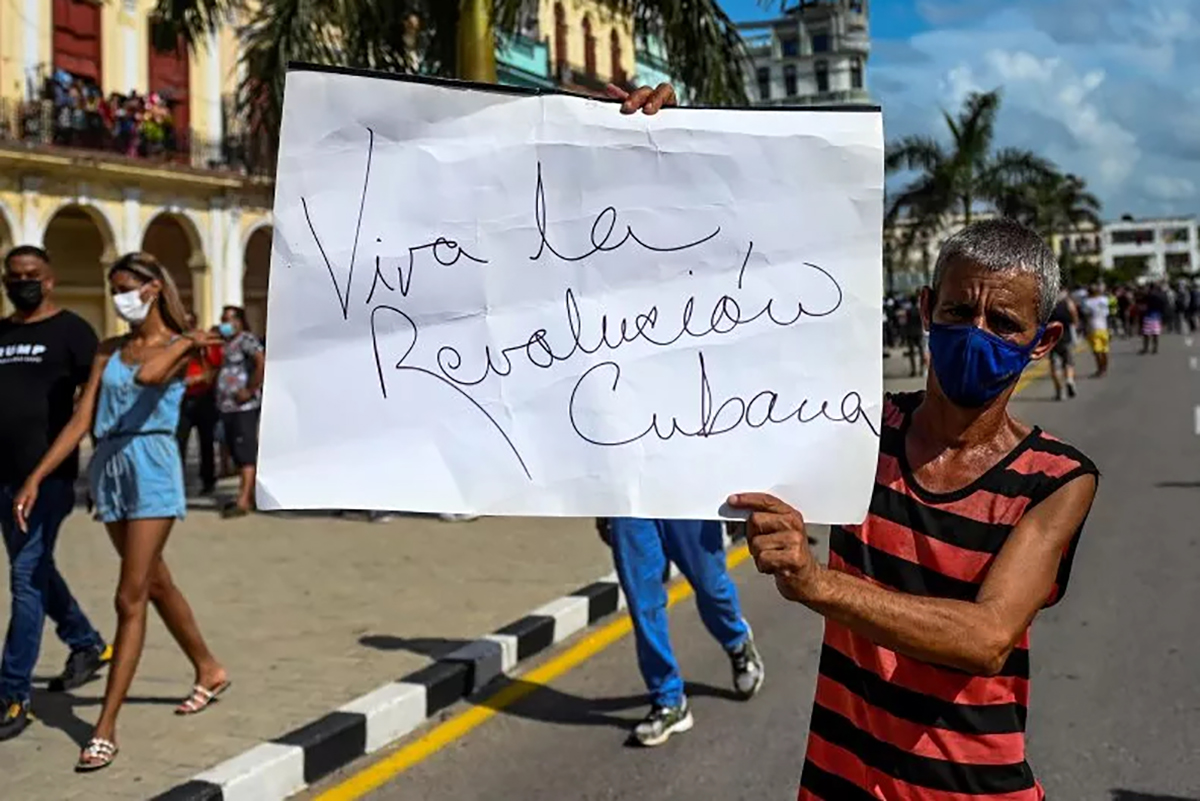 Viva la
Revolución
Cubana
UMP